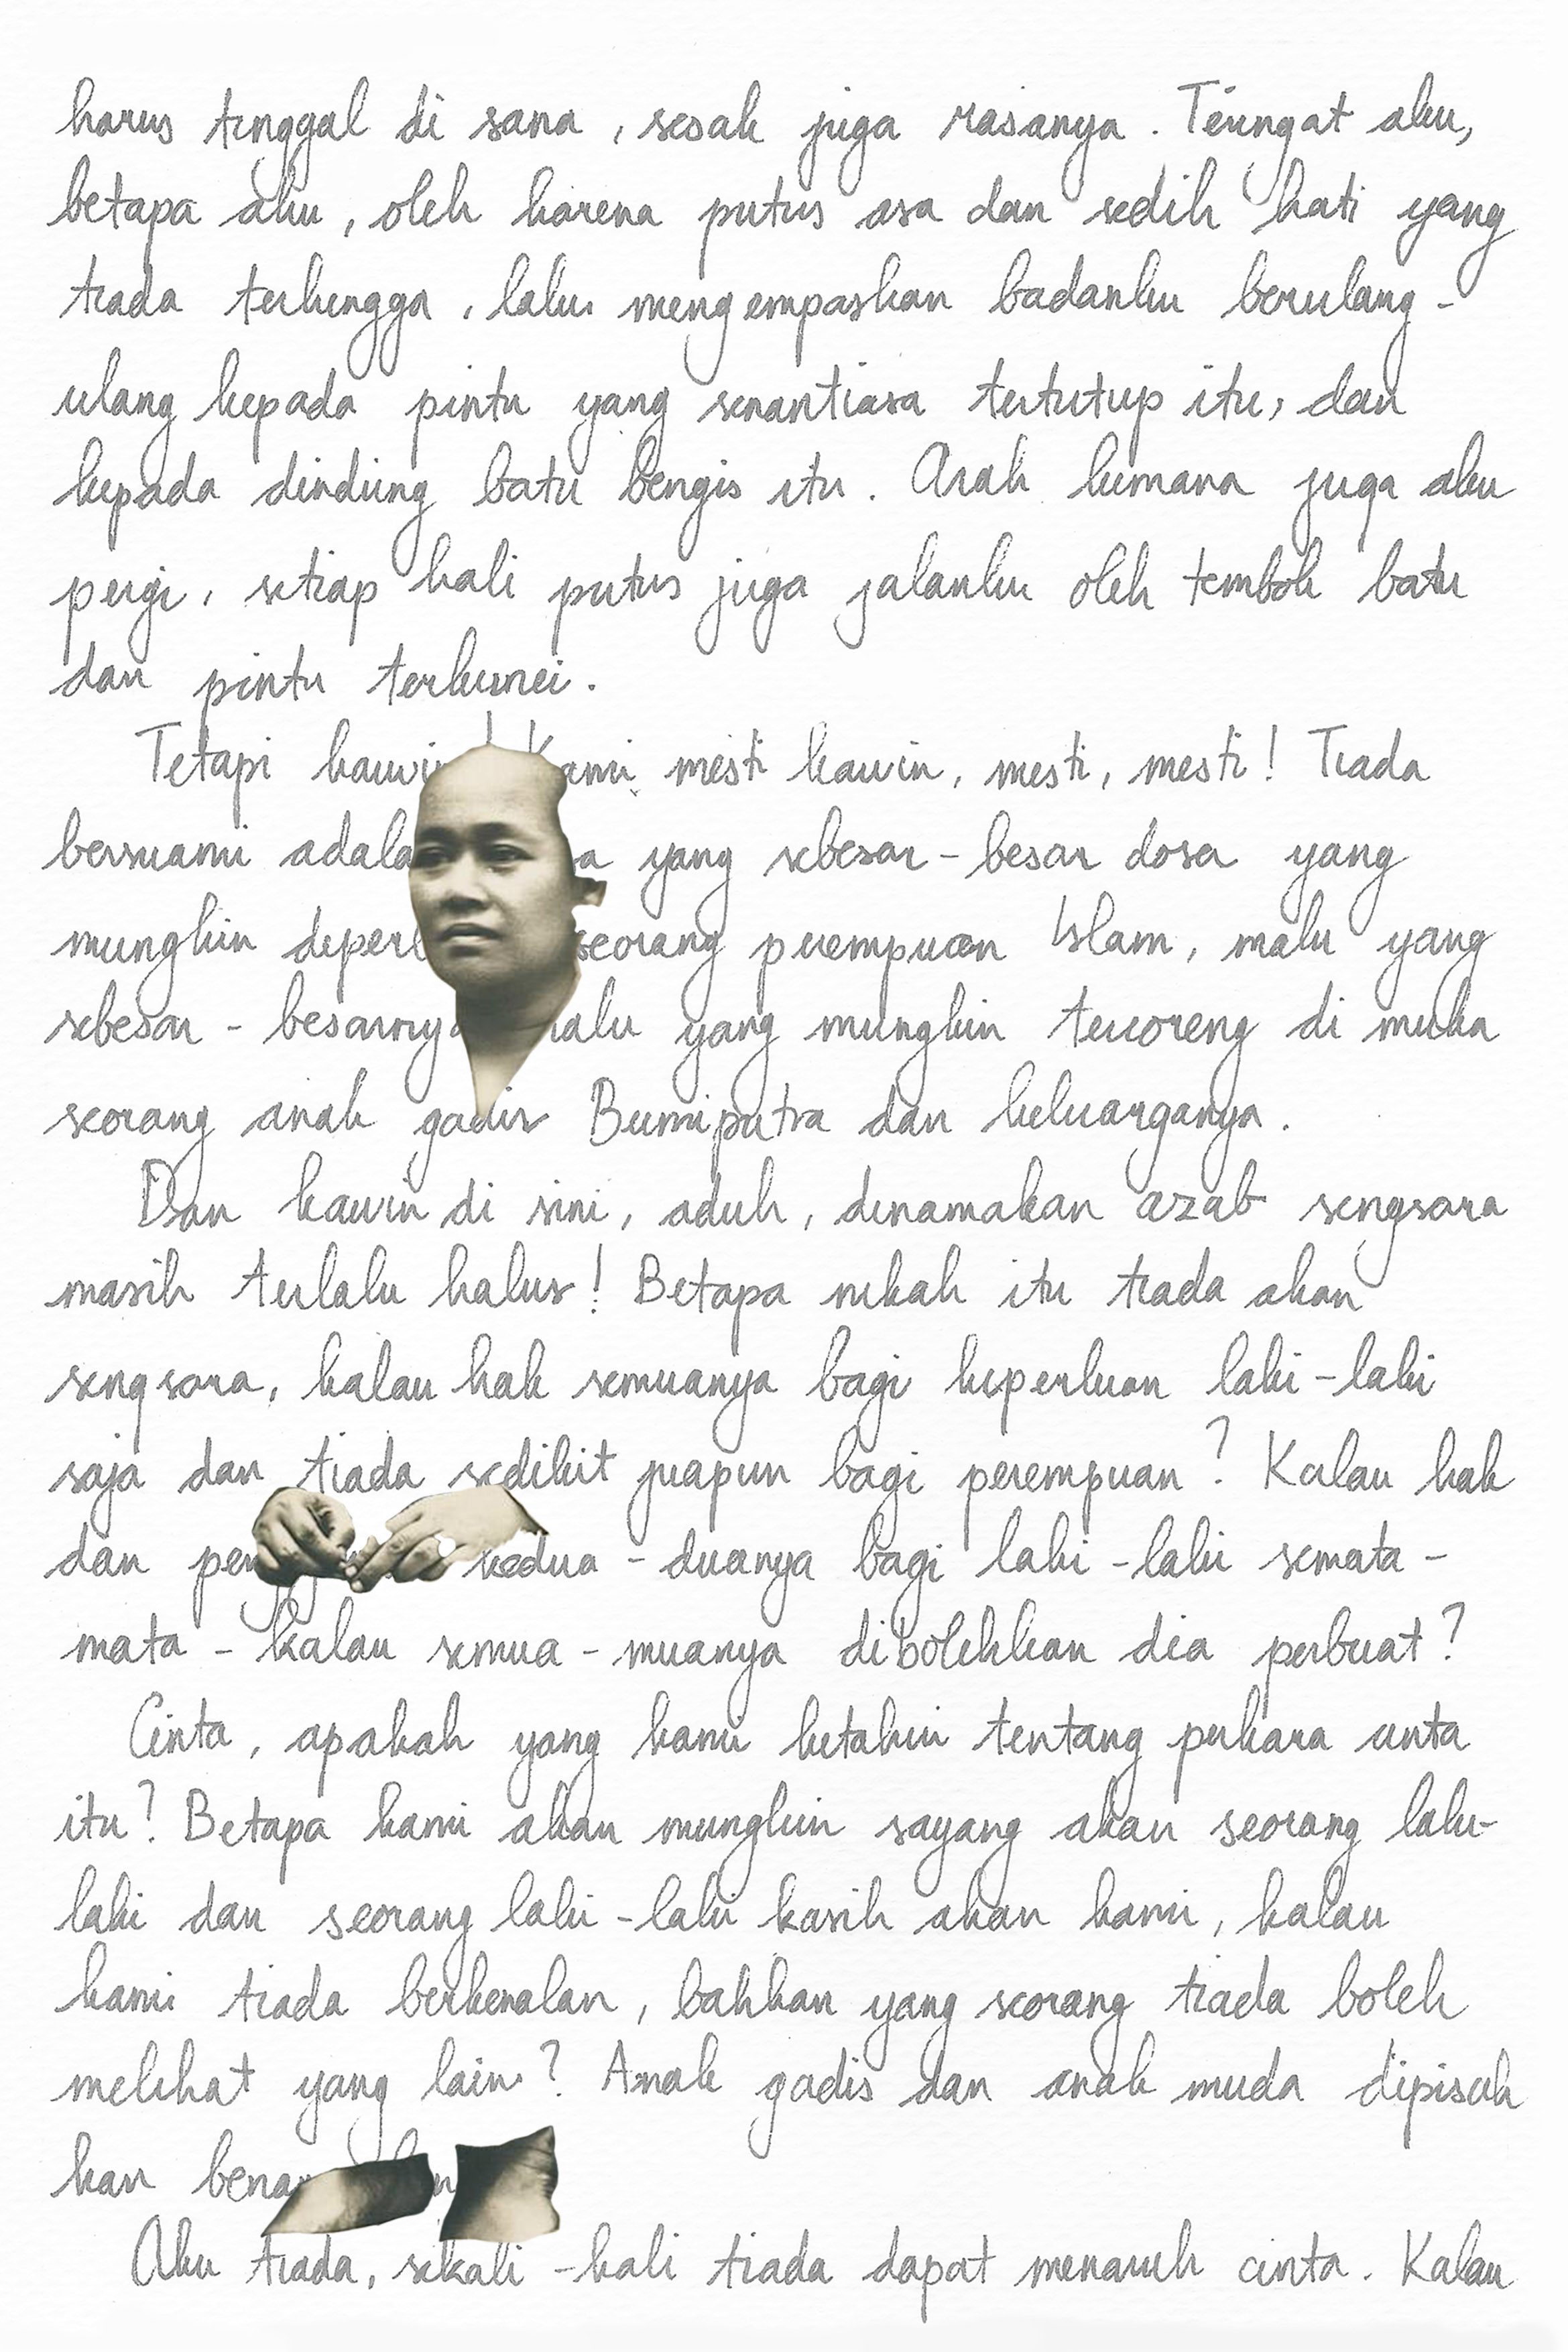 harus tinggal di sana, sesak juga rasanya. Teringat aku,
betapa aku, oleh karena putus asa dan sedih hati yang
tiada terhingga, lalu mengempaskan badanku berulang-
ulang kepada pintu yang senantiasa tertutup itu, dan
kepada dinding batu bengis itu. Arah kemana juga aku
pergi, setiap kali putus juga jalanku oleh tembok batu
dan pintu terkunci.
Tetapi mesti kawin, mesti, mesti! Tiada
bersuami yang sebesar-besar dosa yang
mungkin seorang perempuan Islam, malu yang
sebesar-besarnya yang mungkin tercoreng di muka
seorang anak gadis Bumiputra dan keluarganya.
Dan kawin di sini, aduh, dinamakan azab sengsara
masih terlalu halus! Betapa nikah itu tiada akan
sengsara, kalau hak semuanya bagi keperluan laki-laki
saja dan tiada sedikit juapun bagi perempuan? Kalau hak
dan kedua-duanya bagi laki-laki semata-
mata - kalau semua-muanya dibolehkan dia perbuat?
Cinta, apakah yang kami ketahui tentang perkara cinta
itu? Betapa kami akan mungkin sayang akan seorang laki-
laki dan seorang laki-laki kasih akan kami, kalau
kami tiada berkenalan, bahkan yang seorang tiada boleh
melihat yang lain? Anak gadis dan anak muda dipisah
kan
Aku tiada, sekali-kali tiada dapat menaruh cinta. Kalau